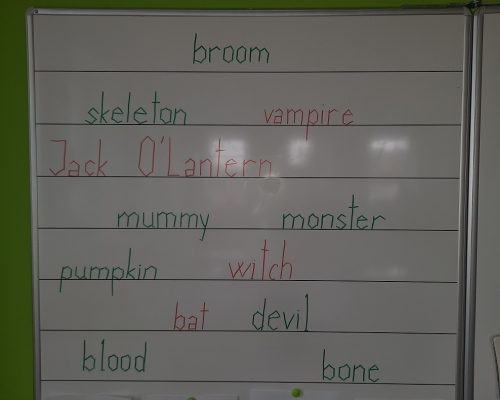 broom
skeleton vampire
Jack O'Lantern
mummy monster
pumpkin witch
bat devil
blood bone